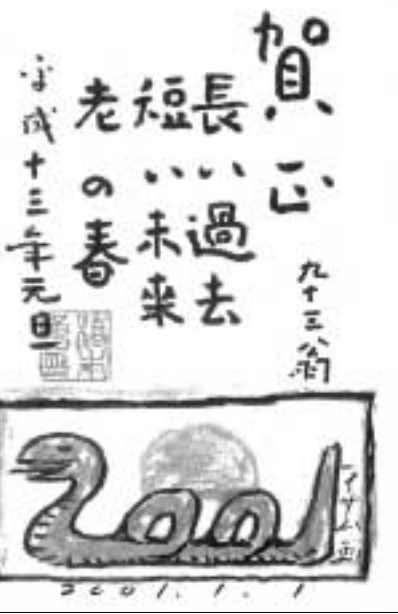 賀正
九十三翁
長い過去
短い未来
老の春
平成十三年元旦
2001
2001.1.1